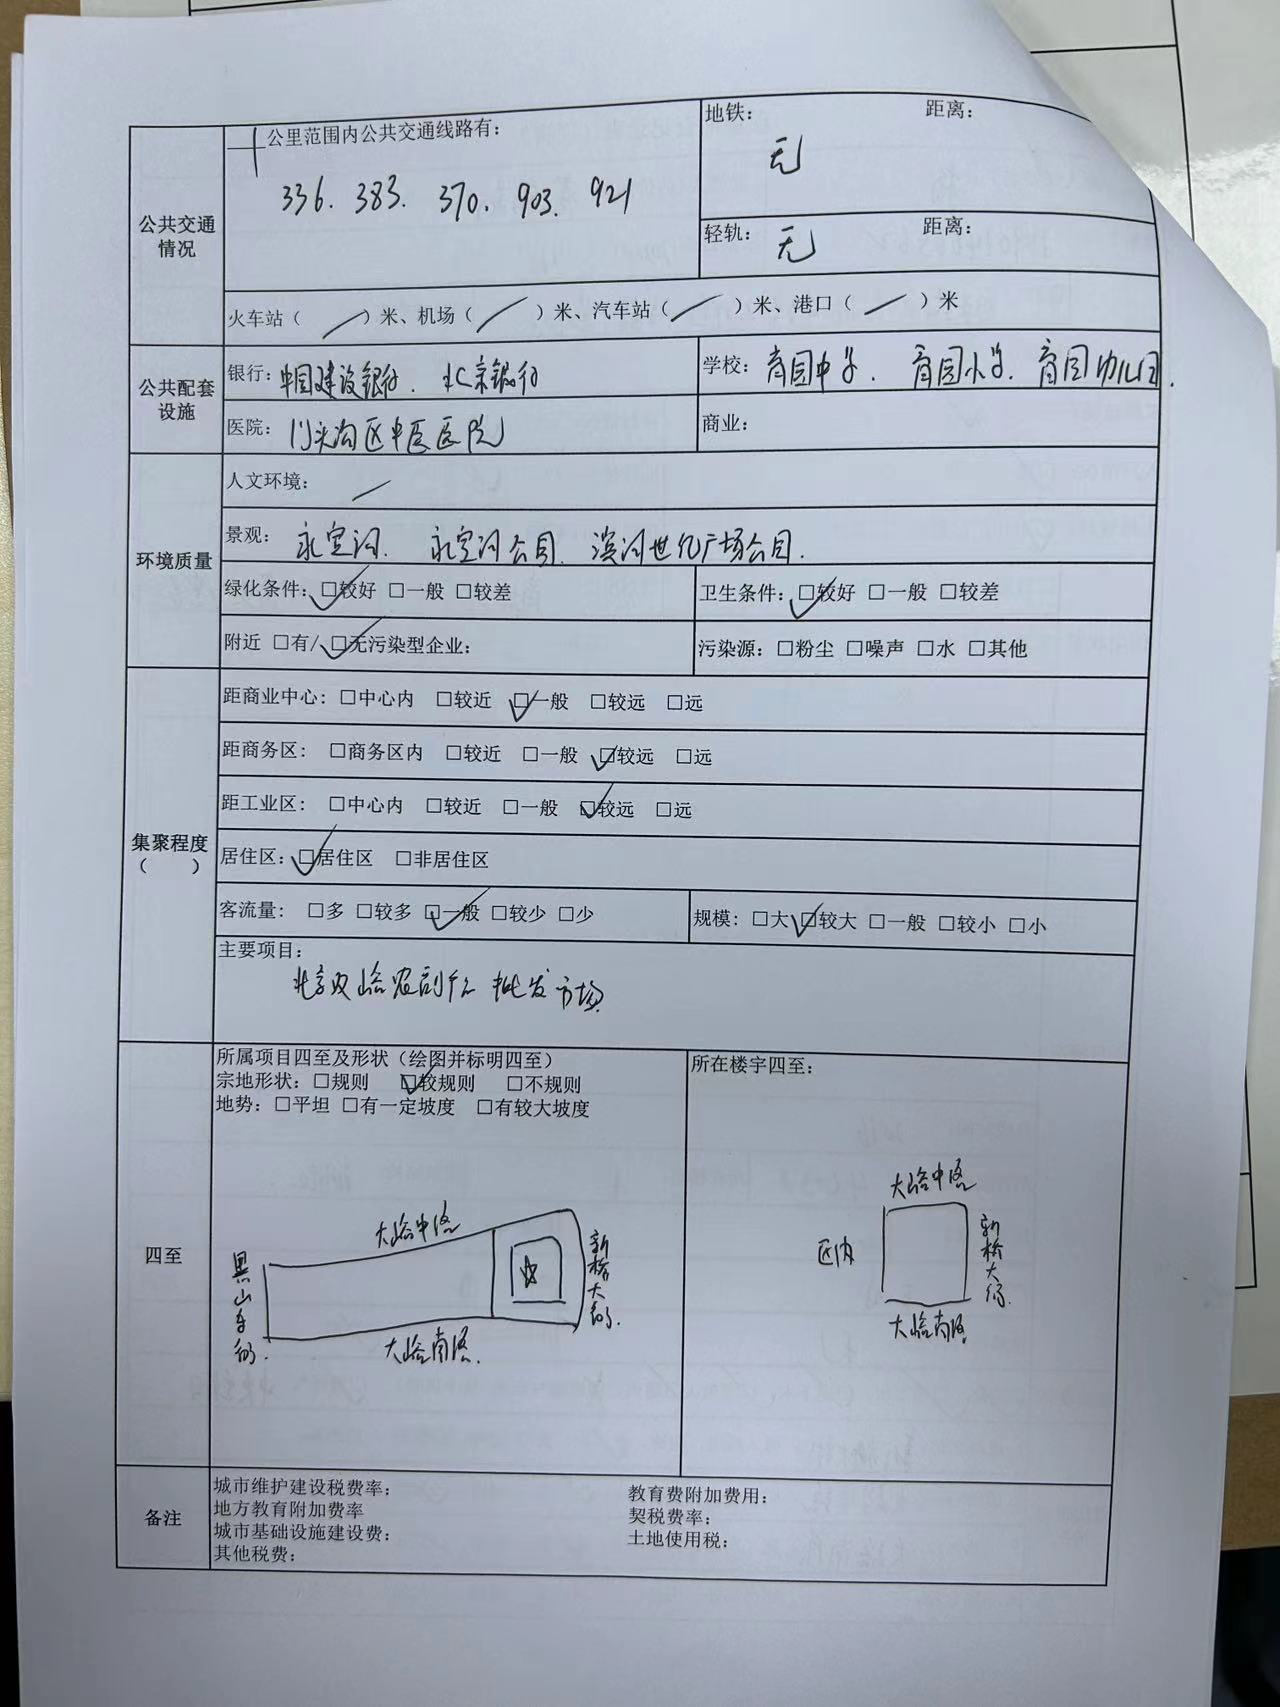 公共交通情况
一公里范围内公共交通线路有：
336. 383. 370. 903. 921
地铁： 无 距离：
轻轨： 无 距离：
火车站（ / ）米、机场（ / ）米、汽车站（ / ）米、港口（ / ）米
公共配套设施
银行：中国建设银行. 北京银行
学校：育园中学. 育园小学. 育园幼儿园.
医院：门头沟区中医医院
商业：
环境质量
人文环境： /
景观：永定河. 永定河公园. 滨河世纪广场公园.
绿化条件：☑较好 □一般 □较差
卫生条件：☑较好 □一般 □较差
附近 □有/☑无污染型企业：
污染源：□粉尘 □噪声 □水 □其他
集聚程度（ ）
距商业中心：□中心内 □较近 ☑一般 □较远 □远
距商务区： □商务区内 □较近 □一般 ☑较远 □远
距工业区： □中心内 □较近 □一般 ☑较远 □远
居住区：☑居住区 □非居住区
客流量： □多 □较多 ☑一般 □较少 □少
规模：□大 ☑较大 □一般 □较小 □小
主要项目：
北京双峪农副产品批发市场
四至
所属项目四至及形状（绘图并标明四至）
宗地形状：□规则 ☑较规则 □不规则
地势：□平坦 □有一定坡度 □有较大坡度
大峪中路
黑山东街.
新桥大街.
大峪南路.
所在楼宇四至：
大峪中路
区内
新桥大街.
大峪南路
备注
城市维护建设税费率：
教育费附加费用：
地方教育附加费率
契税费率：
城市基础设施建设费：
土地使用税：
其他税费：